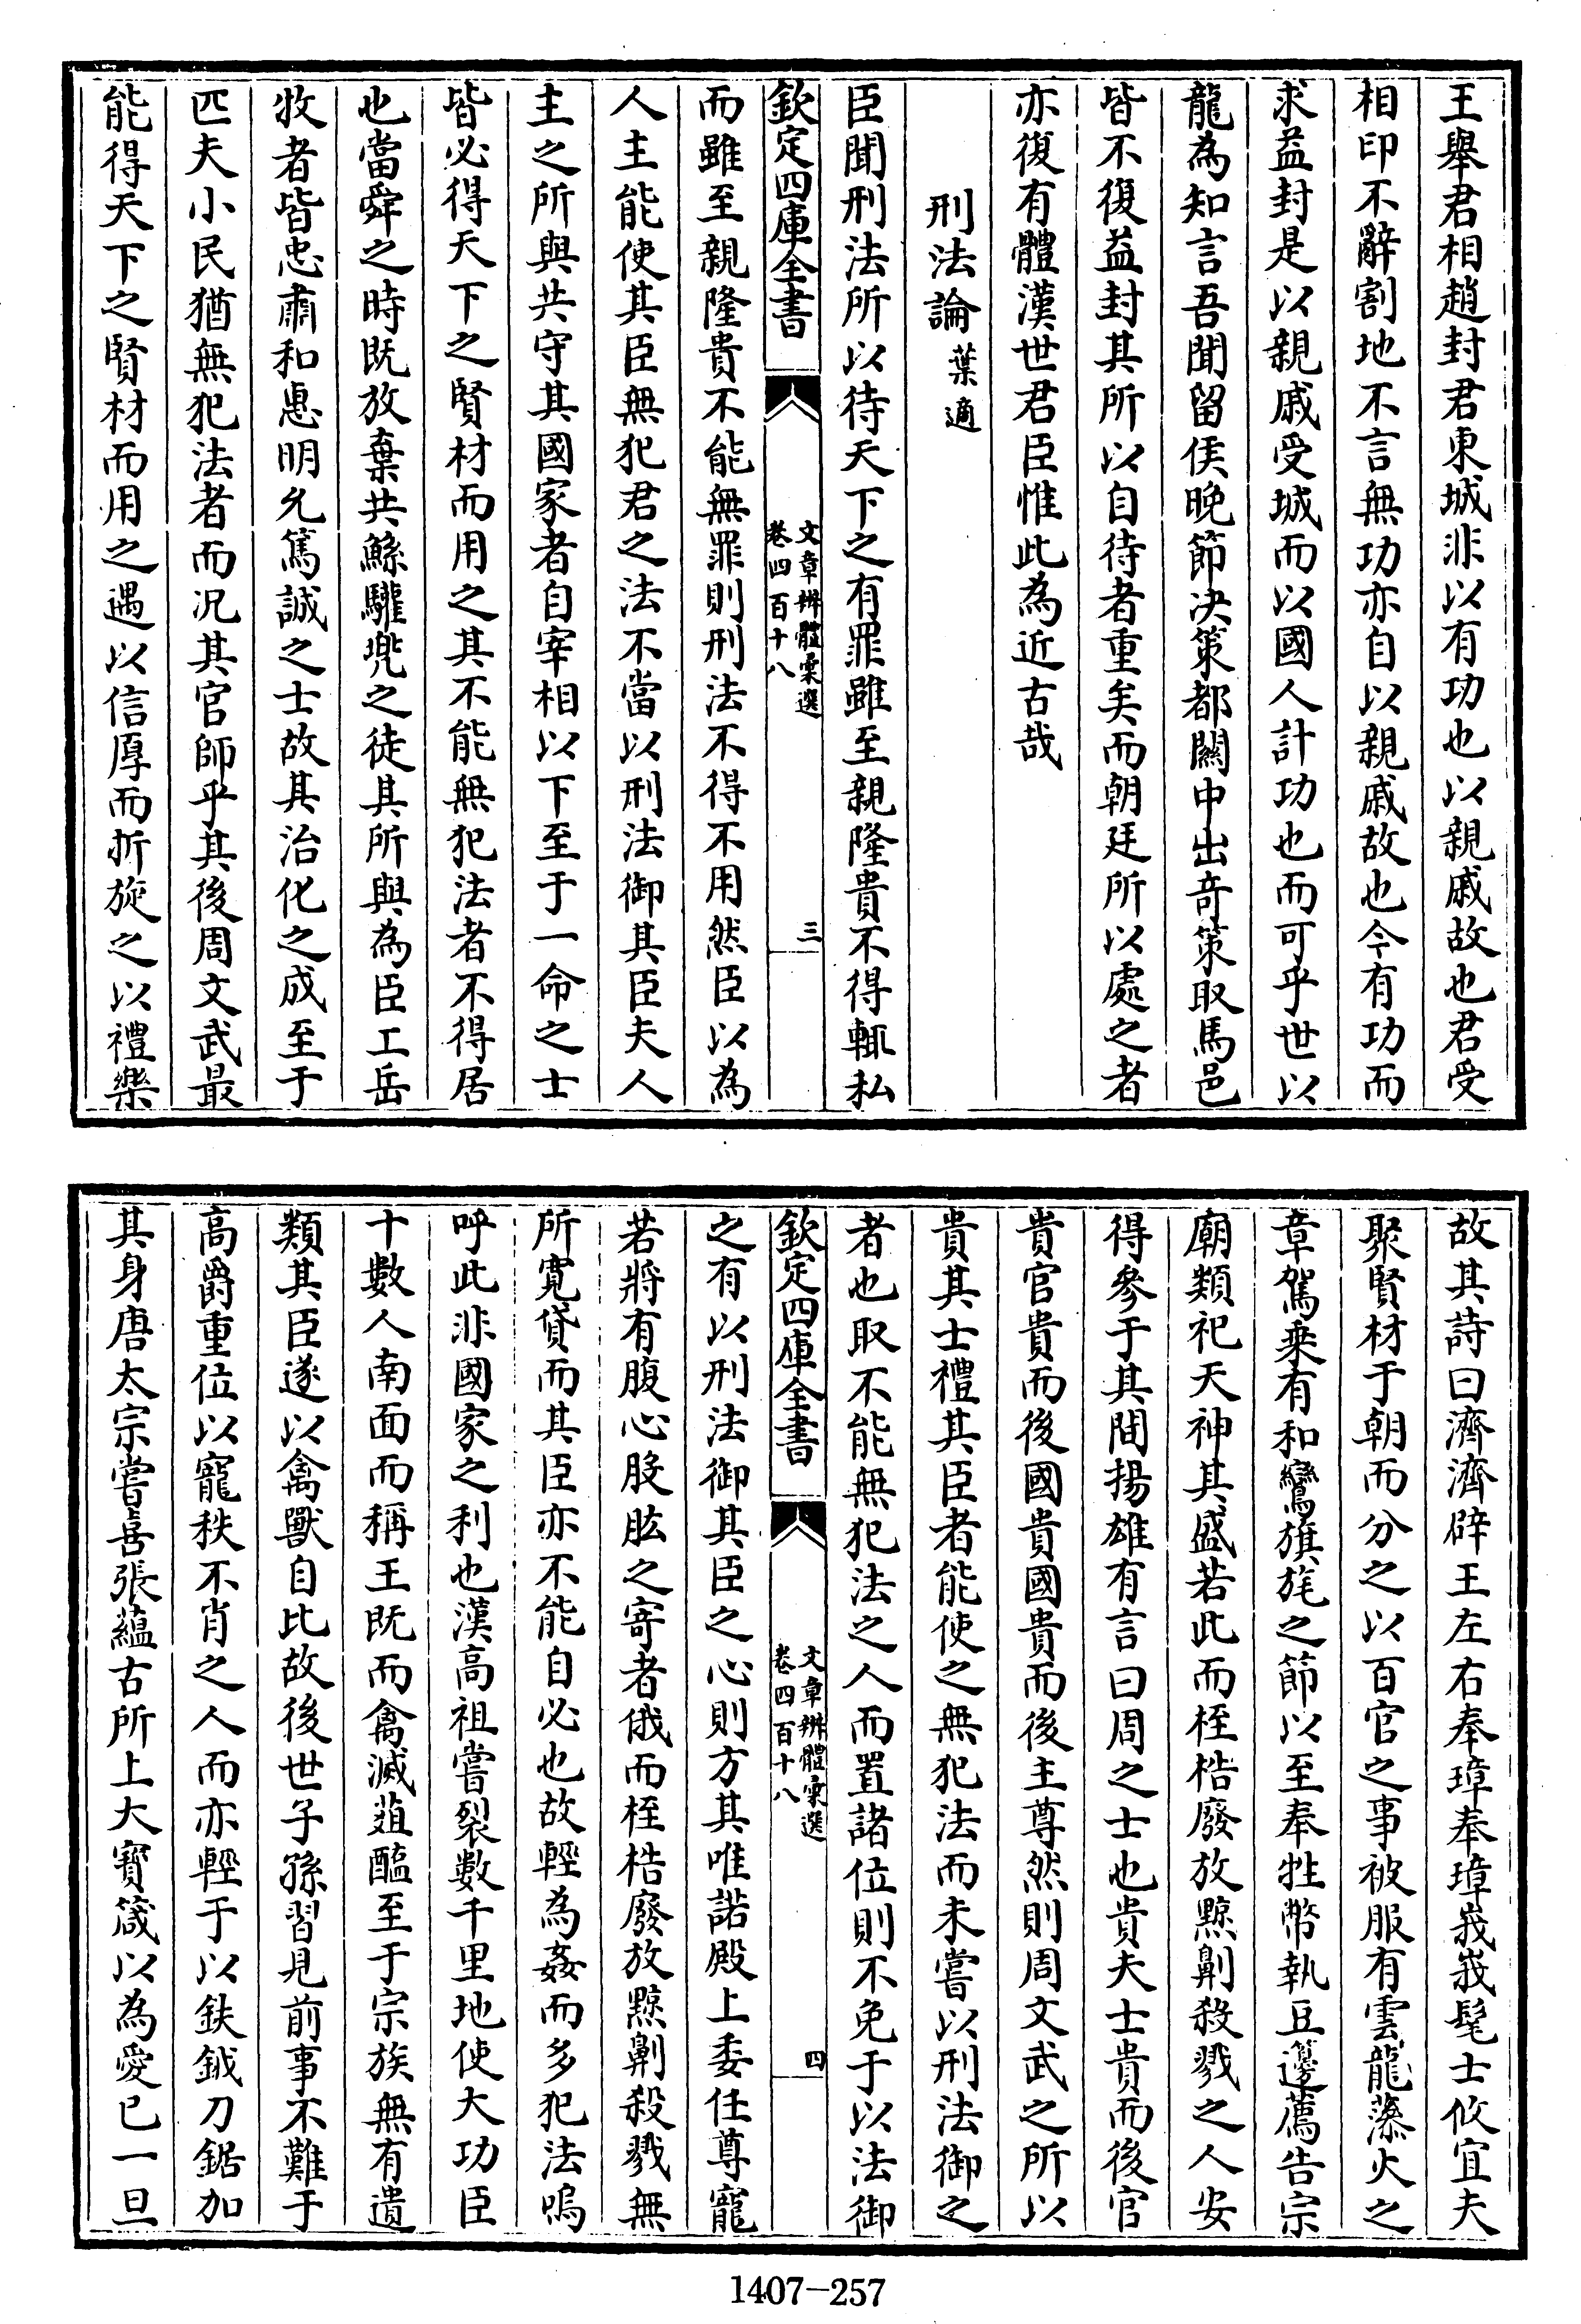 王舉君相趙封君東城非以有功也以親戚故也君受
相印不辭割地不言無功亦自以親戚故也今有功而
求益封是以親戚受城而以國人計功也而可乎世以
龍為知言吾聞留侯晚節決策都關中出奇策取馬邑
皆不復益封其所以自待者重矣而朝廷所以處之者
亦復有體漢世君臣惟此為近古哉
刑法論 葉適
臣聞刑法所以待天下之有罪雖至親隆貴不得輒私
欽定四庫全書 文章辨體彙選 卷四百十八 三
而雖至親隆貴不能無罪則刑法不得不用然臣以為
人主能使其臣無犯君之法不當以刑法御其臣夫人
主之所與共守其國家者自宰相以下至于一命之士
皆必得天下之賢材而用之其不能無犯法者不得居
也當舜之時既放棄共鯀驩兜之徒其所與為臣工岳
牧者皆忠肅和惠明允篤誠之士故其治化之成至于
匹夫小民猶無犯法者而况其官師乎其後周文武最
能得天下之賢材而用之遇以信厚而折旋之以禮樂
故其詩曰濟濟辟王左右奉璋奉璋峩峩髦士攸宜夫
聚賢材于朝而分之以百官之事被服有雲龍藻火之
章駕乗有和鸞旗旄之節以至奉牲幣執豆籩薦告宗
廟類祀天神其盛若此而桎梏廢放黥劓殺戮之人安
得參于其間揚雄有言曰周之士也貴夫士貴而後官
貴官貴而後國貴國貴而後主尊然則周文武之所以
貴其士禮其臣者能使之無犯法而未嘗以刑法御之
者也取不能無犯法之人而置諸位則不免于以法御
欽定四庫全書 文章辨體彙選 卷四百十八 四
之有以刑法御其臣之心則方其唯諾殿上委任尊寵
若將有腹心股肱之寄者俄而桎梏廢放黥劓殺戮無
所寛貸而其臣亦不能自必也故輕為姦而多犯法嗚
呼此非國家之利也漢高祖嘗裂數千里地使大功臣
十數人南面而稱王既而禽滅葅醢至于宗族無有遺
類其臣遂以禽獸自比故後世子孫習見前事不難于
高爵重位以寵秩不肖之人而亦輕于以鈇鉞刀鋸加
其身唐太宗嘗喜張藴古所上大寳箴以為愛已一旦
1407-257